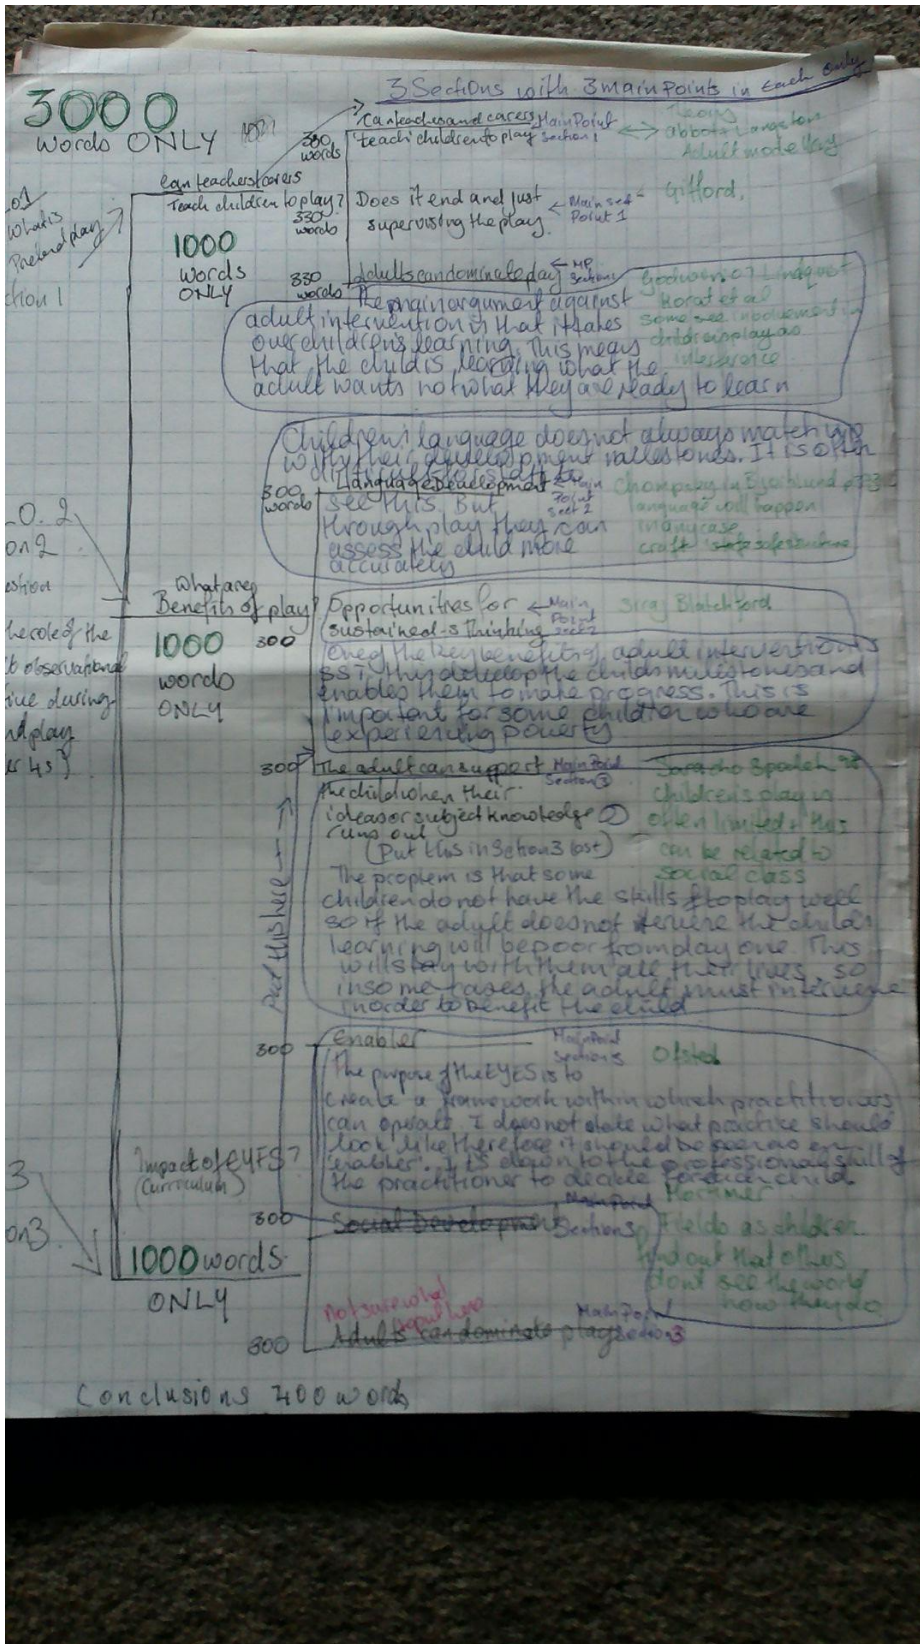 3 Sections with 3 main Points in each only
3000
Words ONLY
Can teachers and carers
teach children to play
Main Point
Section 1
330
words
Theory
abbott + Langston
Adult modelling
Can teachers/carers
Teach children to play?
1000
words
ONLY
330
words
Does it end and just
supervising the play.
Main sect
Point 1
Gifford,
What is
Pretend play
ction 1
330
words
Adults can dominate play
MP
Section 1
Lindquist
Korat et al
some see involvement in
childrens play as
interference
The main argument against
adult intervention is that it takes
over children's learning. This means
that the child is learning what the
adult wants not what they are ready to learn
Children's language does not always match up
with their development milestones. It is often
300
words
Language Development
Main
Point
Sect 2
see this. But
through play they can
assess the child more
accurately
Chompsky in
language will happen
in any case
L.O. 2
on 2
estion
he role of the
observational
ive during
nd play
er 4s?
What are
Benefits of play?
1000
words
ONLY
300
Opportunities for
sustained-s Thinking
Main
Point
sect 2
Siraj Blatchford
One of the key benefits of adult intervention is
SST, this develop the childs milestones and
enables them to make progress. This is
important for some children who are
experiencing poverty
300
The adult can support
Main Point
Section 3
the child when their
ideas or subject knowledge
runs out
(Put this in Section 3 last)
Saracho Spodek 98
Children's play is
often limited + this
can be related to
Social class
Put this here
The problem is that some
children do not have the skills to play well
so if the adult does not intervene the childs
learning will be poor from day one. This
will stay with them all their lives. so
in some cases, the adult must intervene
in order to benefit the child
300
enabler
Main Point
Section 3
Ofsted
The purpose of the EYFS is to
create a framework within which practitioners
can operate. I does not state what practice should
look like therefore it should be seen as an
'enabler'. It is down to the professional skill of
the practitioner to decide for each child
Impact of EYFS?
(Curriculum)
1000 words
ONLY
3
on 3
300
Social Development
Main Point
Section 3
Mortimer
Fields as children
find out that others
dont see the world
how they do
not sure what
to put here
300
Adults can dominate play
Main Point
Section 3
Conclusions 400 words